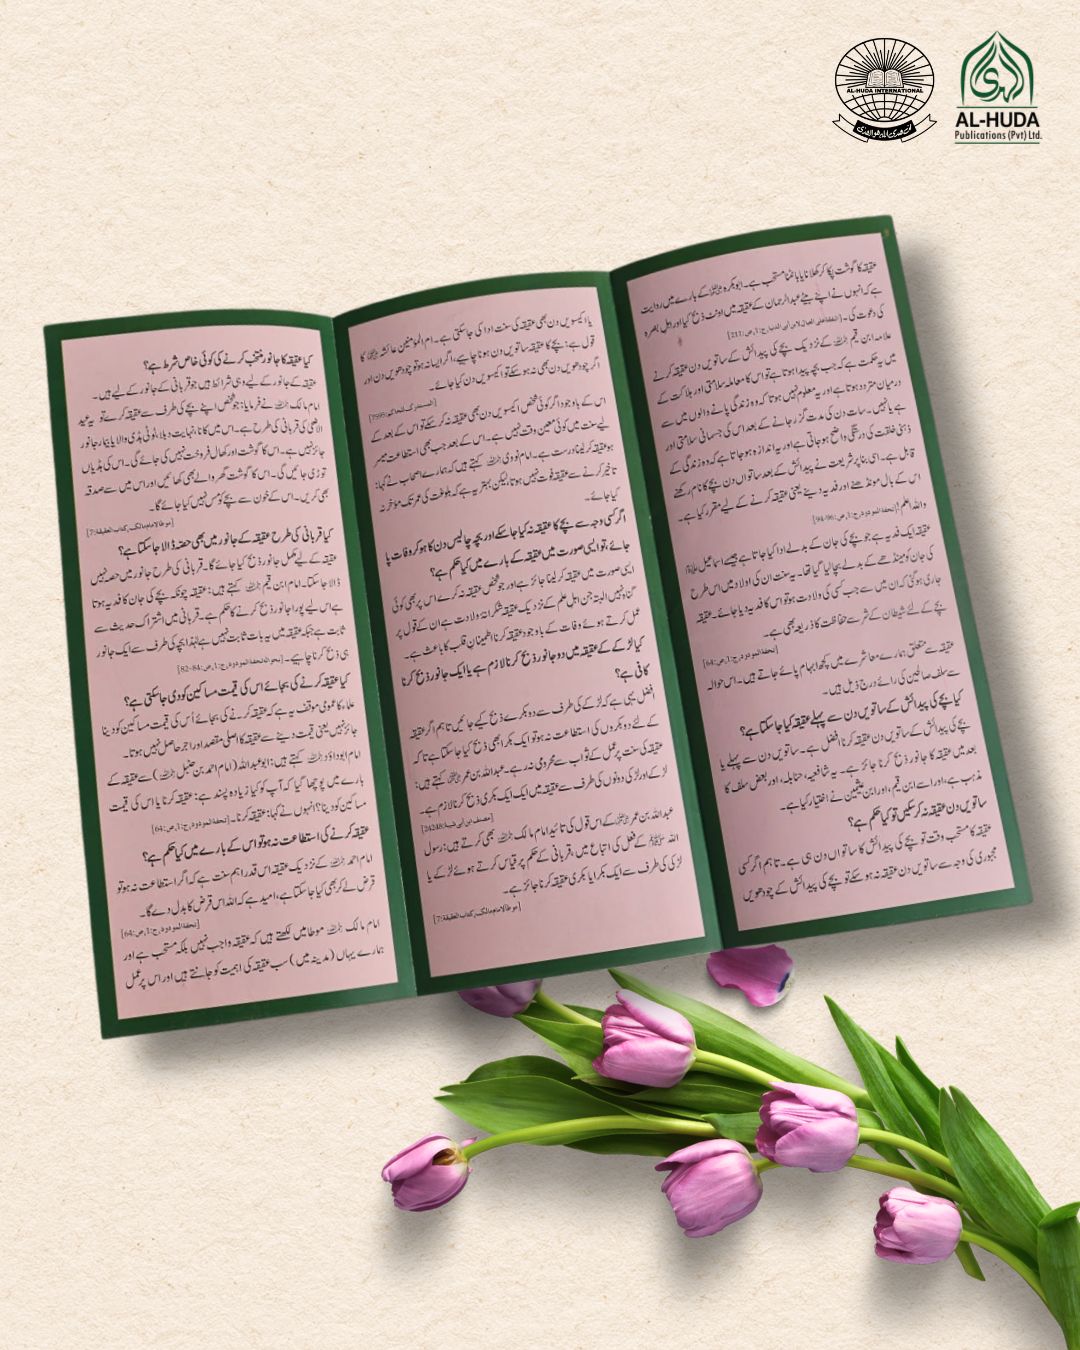 AL-HUDA INTERNATIONAL
AL-HUDA
Publications (Pvt) Ltd.
عقیقہ کا گوشت پکا کر کھلانا یا بانٹنا مستحب ہے۔ ابوبکرہ کے بارے میں روایت
ہے کہ انہوں نے اپنے بیٹے عبدالرحمان کے عقیقہ میں اونٹ ذبح کیا اور اہل بصرہ
کی دعوت کی۔
علامہ ابن قیم کے نزدیک بچے کی پیدائش کے ساتویں دن عقیقہ کرنے
میں یہ حکمت ہے کہ جب بچہ پیدا ہوتا ہے تو اس کا معاملہ سلامتی اور ہلاکت کے
درمیان متردد ہوتا ہے اور یہ معلوم نہیں ہوتا کہ وہ زندگی پانے والوں میں سے
ہے یا نہیں۔ سات دن کی مدت گزر جانے کے بعد اس کی جسمانی سلامتی اور
ذہنی خلقت کی درستگی واضح ہو جاتی ہے اور یہ اندازہ ہو جاتا ہے کہ وہ زندگی کے
قابل ہے۔ اسی بنا پر شریعت نے پیدائش کے بعد ساتواں دن بچے کا نام رکھنے
اس کے بال مونڈھنے اور فدیہ دینے یعنی عقیقہ کرنے کے لیے مقرر کیا ہے۔
واللہ اعلم! [تحفة المودود، ج:1، ص:96-94]
عقیقہ ایک فدیہ ہے جو بچے کی جان کے بدلے ادا کیا جاتا ہے جیسے اسماعیل
کی جان کو مینڈھے کے بدلے بچا لیا گیا تھا۔ یہ سنت ان کی اولاد میں اس طرح
جاری ہو گئی کہ ان میں سے جب کسی کی ولادت ہو تو اس کا فدیہ دیا جائے۔ عقیقہ
بچے کے لئے شیطان کے شر سے حفاظت کا ذریعہ بھی ہے۔
[تحفة المودود، ج:1، ص:64]
عقیقہ سے متعلق ہمارے معاشرے میں کچھ ابہام پائے جاتے ہیں۔ اس حوالہ
سے سلف صالحین کی رائے درج ذیل ہیں۔
کیا بچے کی پیدائش کے ساتویں دن سے پہلے عقیقہ کیا جا سکتا ہے؟
بچے کی پیدائش کے ساتویں دن عقیقہ کرنا افضل ہے۔ ساتویں دن سے پہلے یا
بعد میں عقیقہ کا جانور ذبح کرنا جائز ہے۔ یہ شافعیہ، حنابلہ، اور بعض سلف کا
مذہب ہے، اور اسے ابن قیم، اور ابن عثیمین نے اختیار کیا ہے۔
ساتویں دن عقیقہ نہ کر سکیں تو کیا حکم ہے؟
عقیقہ کا مستحب وقت تو بچے کی پیدائش کا ساتواں دن ہی ہے۔ تاہم اگر کسی
مجبوری کی وجہ سے ساتویں دن عقیقہ نہ ہو سکے تو بچے کی پیدائش کے چودھویں
یا اکیسویں دن بھی عقیقہ کی سنت ادا کی جا سکتی ہے۔ ام المؤمنین عائشہ کا
قول ہے: بچے کا عقیقہ ساتویں دن ہونا چاہیے، اگر ایسا نہ ہو تو چودھویں دن اور
اگر چودھویں دن بھی نہ ہو سکے تو اکیسویں دن کیا جائے۔
[المستدرک للحاکم:7595]
اس کے باوجود اگر کوئی شخص اکیسویں دن بھی عقیقہ نہ کر سکے تو اس کے بعد کے
لیے سنت میں کوئی معین وقت نہیں ہے۔ اس کے بعد جب بھی استطاعت میسر
ہو عقیقہ کر لینا درست ہے۔ امام نووی کہتے ہیں کہ ہمارے اصحاب نے کہا:
تاخیر کرنے سے عقیقہ فوت نہیں ہوتا، لیکن بہتر یہ ہے کہ بلوغت کی عمر تک مؤخر نہ
کیا جائے۔
اگر کسی وجہ سے بچے کا عقیقہ نہ کیا جا سکے اور بچہ چالیس دن کا ہو کر وفات پا
جائے، تو ایسی صورت میں عقیقہ کے بارے میں کیا حکم ہے؟
ایسی صورت میں عقیقہ کر لینا جائز ہے اور جو شخص عقیقہ نہ کرے اس پر بھی کوئی
گناہ نہیں البتہ جن اہل علم کے نزدیک عقیقہ شکرانۂ ولادت ہے ان کے قول پر
عمل کرتے ہوئے وفات کے باوجود عقیقہ کرنا اطمینان قلب کا باعث ہے۔
کیا لڑکے کے عقیقہ میں دو جانور ذبح کرنا لازم ہے یا ایک جانور ذبح کرنا
کافی ہے؟
افضل یہی ہے کہ لڑکے کی طرف سے دو بکرے ذبح کیے جائیں تاہم اگر عقیقہ
کے لئے دو بکروں کی استطاعت نہ ہو تو ایک بکرا بھی ذبح کیا جا سکتا ہے تا کہ
عقیقہ کی سنت پر عمل کے ثواب سے محرومی نہ رہے۔ عبداللہ بن عمر کہتے ہیں:
لڑکے اور لڑکی دونوں کی طرف سے عقیقہ میں ایک ایک بکری ذبح کرنا لازم ہے۔
[مصنف ابن ابی شیبة:24248]
عبداللہ بن عمر کے اس قول کی تائید امام مالک بھی کرتے ہیں: رسول
اللہ ﷺ کے فعل کی اتباع میں، قربانی کے حکم پر قیاس کرتے ہوئے لڑکے یا
لڑکی کی طرف سے ایک بکرا یا بکری عقیقہ کرنا جائز ہے۔
[موطا امام مالک، کتاب العقیقة:7]
کیا عقیقہ کا جانور منتخب کرنے کی کوئی خاص شرط ہے؟
عقیقہ کے جانور کے لیے وہی شرائط ہیں جو قربانی کے جانور کے لیے ہیں۔
امام مالک نے فرمایا: جو شخص اپنے بچے کی طرف سے عقیقہ کرے تو یہ عید
الاضحٰی کی قربانی کی طرح ہے۔ اس میں کانا، نہایت دبلا، ٹوٹی ہڈی والا یا بیمار جانور
جائز نہیں ہے۔ اس کا گوشت اور کھال فروخت نہیں کی جائے گی۔ اس کی ہڈیاں
توڑی جائیں گی۔ اس کا گوشت گھر والے بھی کھائیں اور اس میں سے صدقہ
بھی کریں۔ اس کے خون سے بچے کو مس نہیں کیا جائے گا۔
[موطا امام مالک، کتاب العقیقة:7]
کیا قربانی کی طرح عقیقہ کے جانور میں بھی حصہ ڈالا جا سکتا ہے؟
عقیقہ کے لیے مکمل جانور ذبح کیا جائے گا۔ قربانی کی طرح جانور میں حصہ نہیں
ڈالا جا سکتا۔ امام ابن قیم کہتے ہیں: عقیقہ چونکہ بچے کی جان کا فدیہ ہوتا
ہے اس لیے پورا جانور ذبح کرنے کا حکم ہے۔ قربانی میں اشتراک حدیث سے
ثابت ہے جبکہ عقیقہ میں یہ بات ثابت نہیں ہے لہٰذا بچہ کی طرف سے ایک جانور
ہی ذبح کرنا چاہیے۔ [بحوالہ تحفة المودود، ج:1، ص:84-82]
کیا عقیقہ کرنے کی بجائے اس کی قیمت مساکین کو دی جا سکتی ہے؟
علماء کا عمومی موقف یہ ہے کہ عقیقہ کرنے کی بجائے اُس کی قیمت مساکین کو دینا
جائز نہیں یعنی قیمت دینے سے عقیقہ کا اصلی مقصد اور اجر حاصل نہیں ہوتا۔
امام ابو داؤد کہتے ہیں: ابو عبداللہ (امام احمد بن حنبل) سے عقیقہ کے
بارے میں پوچھا گیا کہ آپ کو کیا زیادہ پسند ہے: عقیقہ کرنا یا اس کی قیمت
مساکین کو دینا؟ انہوں نے کہا: عقیقہ کرنا۔ [تحفة المودود، ج:1، ص:64]
عقیقہ کرنے کی استطاعت نہ ہو تو اس کے بارے میں کیا حکم ہے؟
امام احمد کے نزدیک عقیقہ اس قدر اہم سنت ہے کہ اگر استطاعت نہ ہو تو
قرض لے کر بھی کیا جا سکتا ہے، امید ہے کہ اللہ اس قرض کا بدل دے گا۔
[تحفة المودود، ج:1، ص:64]
امام مالک موطا میں لکھتے ہیں کہ عقیقہ واجب نہیں بلکہ مستحب ہے اور
ہمارے یہاں (مدینہ میں) سب عقیقہ کی اہمیت کو جانتے ہیں اور اس پر عمل